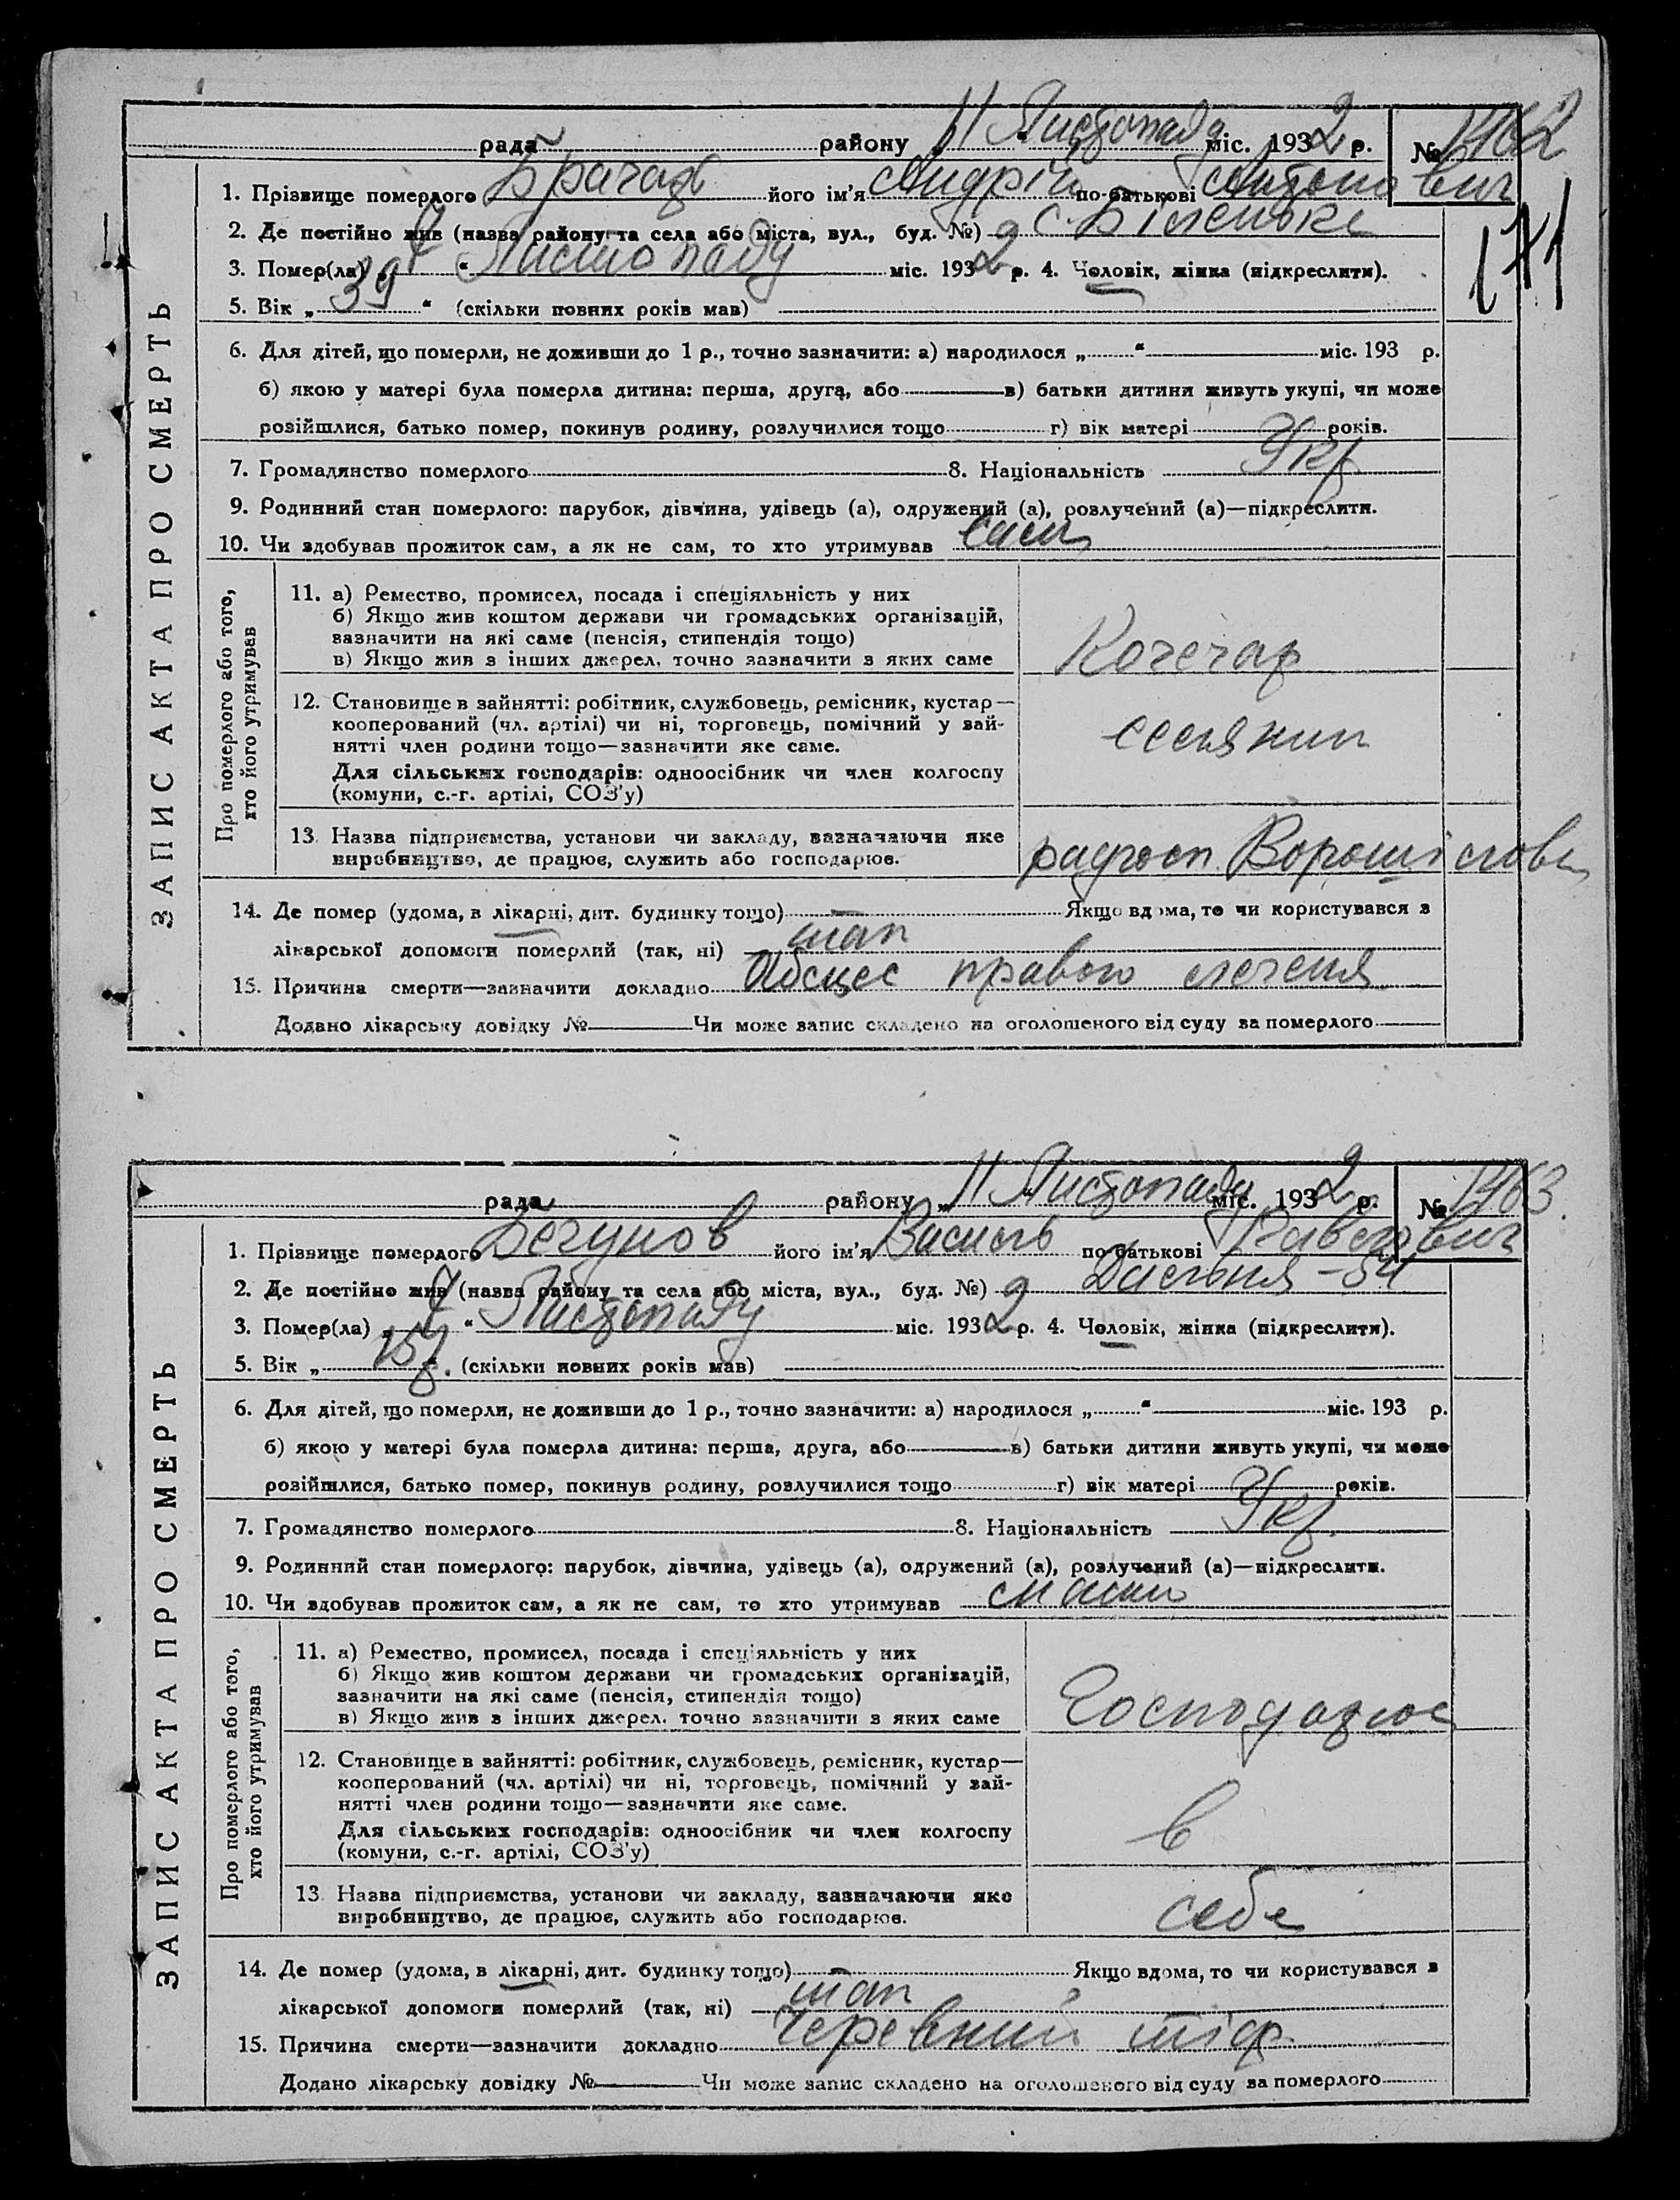 рада района „11 Листопада міс. 1932 р. № 1462
1. Прізвище померлого його ім'я Андрій по-батькові Антонович
2. Де постійно жив (назва району та села або міста, вул., буд. №) с. Біленьке
3. Помер(ла) „7“ Листопаду міс. 1932 р. 4. Чоловік, жінка (підкреслити).
171
5. Вік „39“ (скільки повних років мав)
6. Для дітей, що померли, не доживши до 1 р., точно зазначити: а) народилося „ “ міс. 193 р.
б) якою у матері була померла дитина: перша, друга, або в) батьки дитини живуть укупі, чи може
розійшлися, батько помер, покинув родину, розлучилися тощо г) вік матері років.
7. Громадянство померлого 8. Національність Укр
9. Родинний стан померлого: парубок, дівчина, удівець (а), одружений (а), розлучений (а)—підкреслити.
10. Чи здобував прожиток сам, а як не сам, то хто утримував сам
ЗАПИС АКТА ПРО СМЕРТЬ
Про померлого або того,
хто його утримував
11. а) Ремество, промисел, посада і спеціяльність у них
б) Якщо жив коштом держави чи громадських організацій,
зазначити на які саме (пенсія, стипендія тощо)
в) Якщо жив з інших джерел, точно зазначити з яких саме
Кочегар
12. Становище в зайнятті: робітник, службовець, ремісник, кустар—
кооперований (чл. артілі) чи ні, торговець, помічний у зай-
нятті член родини тощо—зазначити яке саме.
Для сільських господарів: одноосібник чи член колгоспу
(комуни, с.-г. артілі, СОЗ'у)
селянин
13. Назва підприємства, установи чи закладу, зазначаючи яке
виробництво, де працює, служить або господарює.
радгосп Ворошилова
14. Де помер (удома, в лікарні, дит. будинку тощо) Якщо вдома, то чи користувався з
лікарської допомоги померлий (так, ні) так
15. Причина смерти—зазначити докладно Абсцес правого легеня
Додано лікарську довідку № Чи може запис складено на оголошеного від суду за померлого
рада району „11 Листопаду міс. 1932 р. № 1463
1. Прізвище померлого Бегунов його ім'я Василь по-батькові Павлович
2. Де постійно жив (назва району та села або міста, вул., буд. №) 54
3. Помер(ла) „7“ Листопаду міс. 1932 р. 4. Чоловік, жінка (підкреслити).
5. Вік „ (скільки повних років мав)
6. Для дітей, що померли, не доживши до 1 р., точно зазначити: а) народилося „ “ міс. 193 р.
б) якою у матері була померла дитина: перша, друга, або в) батьки дитини живуть укупі, чи може
розійшлися, батько помер, покинув родину, розлучилися тощо г) вік матері років.
7. Громадянство померлого 8. Національність Укр.
9. Родинний стан померлого: парубок, дівчина, удівець (а), одружений (а), розлучений (а)—підкреслити.
10. Чи здобував прожиток сам, а як не сам, то хто утримував
ЗАПИС АКТА ПРО СМЕРТЬ
Про померлого або того,
хто його утримував
11. а) Ремество, промисел, посада і спеціяльність у них
б) Якщо жив коштом держави чи громадських організацій,
зазначити на які саме (пенсія, стипендія тощо)
в) Якщо жив з інших джерел, точно зазначити з яких саме
Господарює
12. Становище в зайнятті: робітник, службовець, ремісник, кустар—
кооперований (чл. артілі) чи ні, торговець, помічний у зай-
нятті член родини тощо—зазначити яке саме.
Для сільських господарів: одноосібник чи член колгоспу
(комуни, с.-г. артілі, СОЗ'у)
в
13. Назва підприємства, установи чи закладу, зазначаючи яке
виробництво, де працює, служить або господарює.
себе
14. Де помер (удома, в лікарні, дит. будинку тощо) Якщо вдома, то чи користувався з
лікарської допомоги померлий (так, ні) так
15. Причина смерти—зазначити докладно Черевний тіф
Додано лікарську довідку № Чи може запис складено на оголошеного від суду за померлого